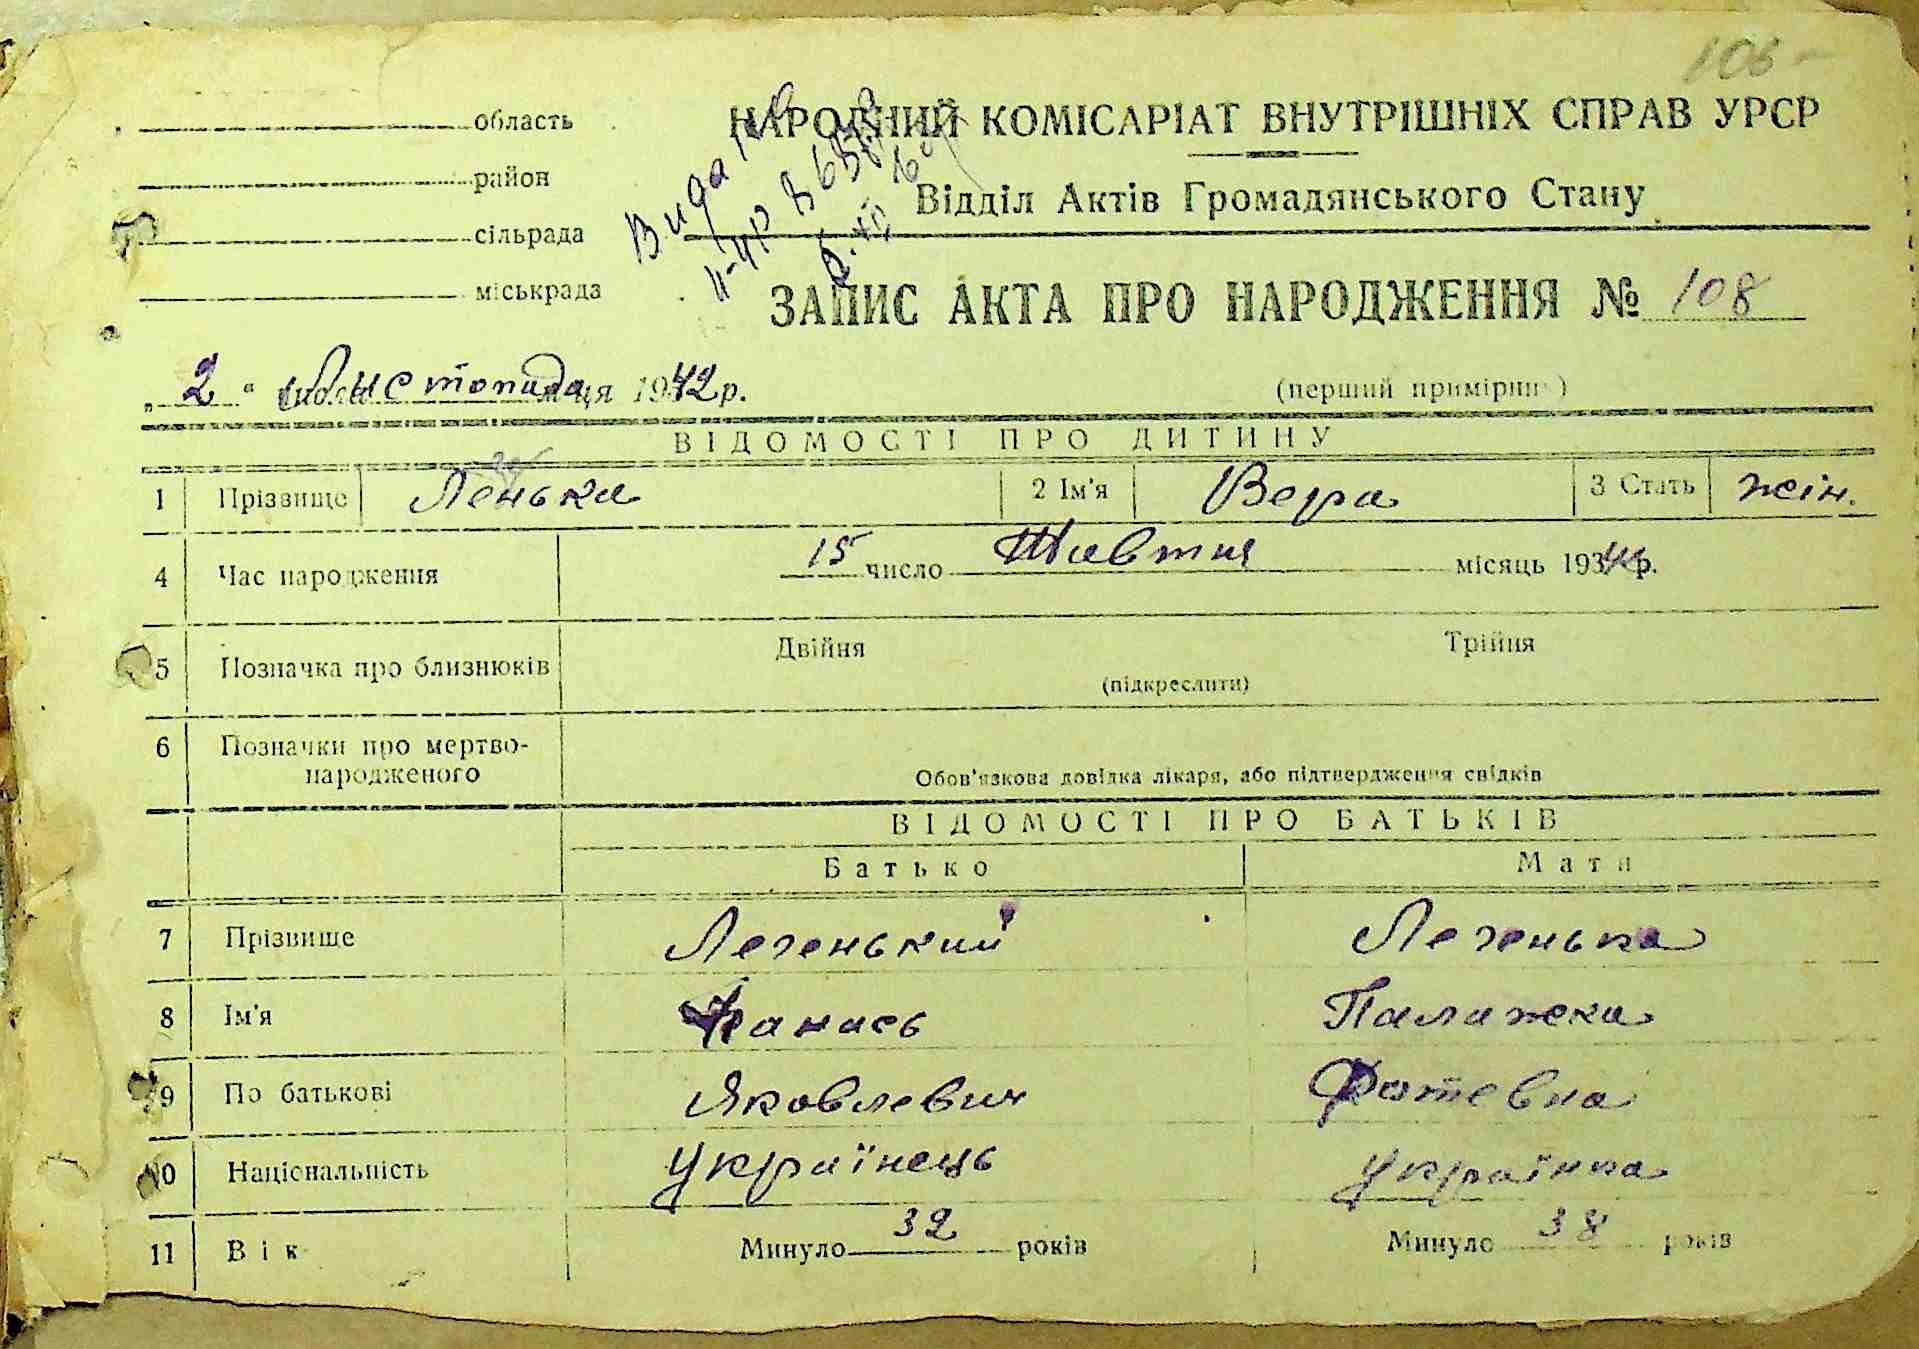 106
область
НАРОДНИЙ КОМІСАРІАТ ВНУТРІШНІХ СПРАВ УРСР
район
Відділ Актів Громадянського Стану
сільрада
міськрада
ЗАПИС АКТА ПРО НАРОДЖЕННЯ № 108
„ 2 “ листопада місяця 1942 р.
(перший примірник)
ВІДОМОСТІ ПРО ДИТИНУ
1 Прізвище Ленька 2 Ім'я Вера 3 Стать жін.
4 Час народження 15 число Жовтня місяць 1942 р.
5 Позначка про близнюків Двійня Трійня
(підкреслити)
6 Позначки про мертво-
народженого Обов'язкова довідка лікаря, або підтвердження свідків
ВІДОМОСТІ ПРО БАТЬКІВ
Батько Мати
7 Прізвище Легенький Легенька
8 Ім'я Панась Палажка
9 По батькові Яковлевич Фотевна
10 Національність Українець Українка
11 Вік Минуло 32 років Минуло 38 років